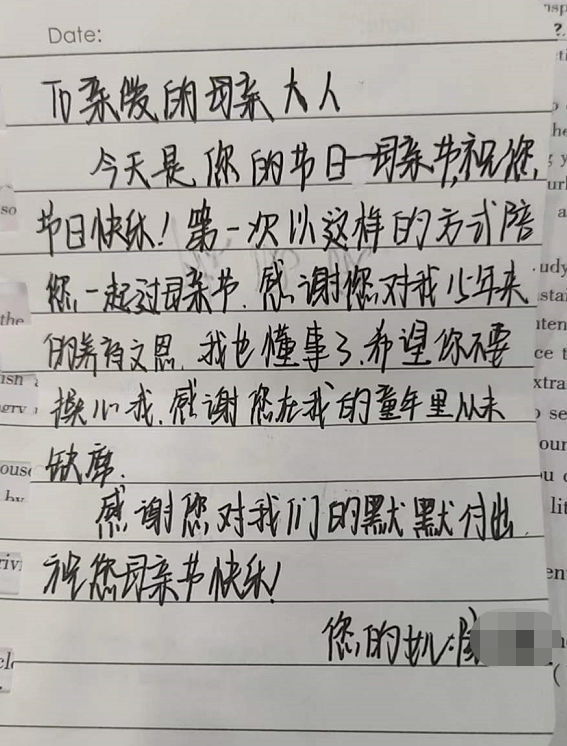 Date:
To 亲爱的母亲大人
今天是您的节日—母亲节,祝您,
节日快乐! 第一次以这样的方式陪
您,一起过母亲节. 感谢您对我15年来
的养育之恩. 我也懂事了.希望你不要
操心我. 感谢您在我的童年里从未
缺席.
感谢您对我们的默默付出.
祝您母亲节快乐!
您的女儿: